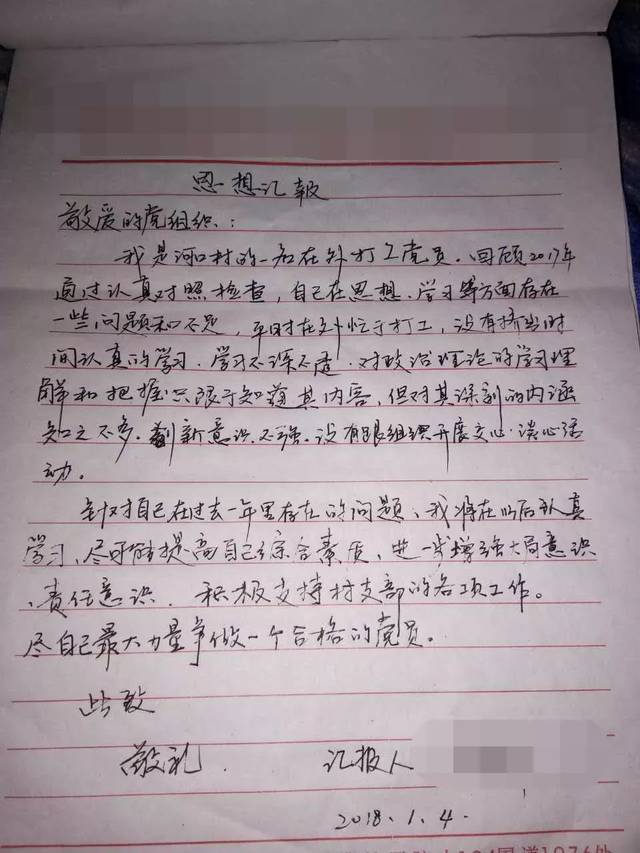 思想汇报
敬爱的党组织:
我是河口村的一名在外打工党员.回顾2017年
通过认真对照检查,自己在思想.学习等方面存在
一些问题和不足,平时在外忙于打工,没有挤出时
间认真的学习.学习不深不透.对政治理论的学习理
解和把握只限于知道其内容,但对其深刻的内涵
知之不多.创新意识不强.没有跟组织开展交心.谈心活
动。
针对自己在过去一年里存在的问题、我将在以后认真
学习、尽可能提高自己综合素质、进一步增强大局意识
、责任意识.积极支持村支部的各项工作。
尽自己最大力量争做一个合格的党员。
此致
敬礼.
汇报人
2018.1.4.